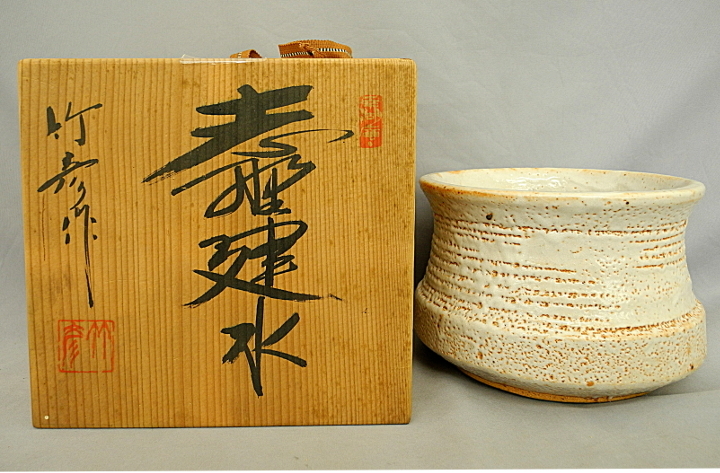 志野建水
竹彦作
竹彦